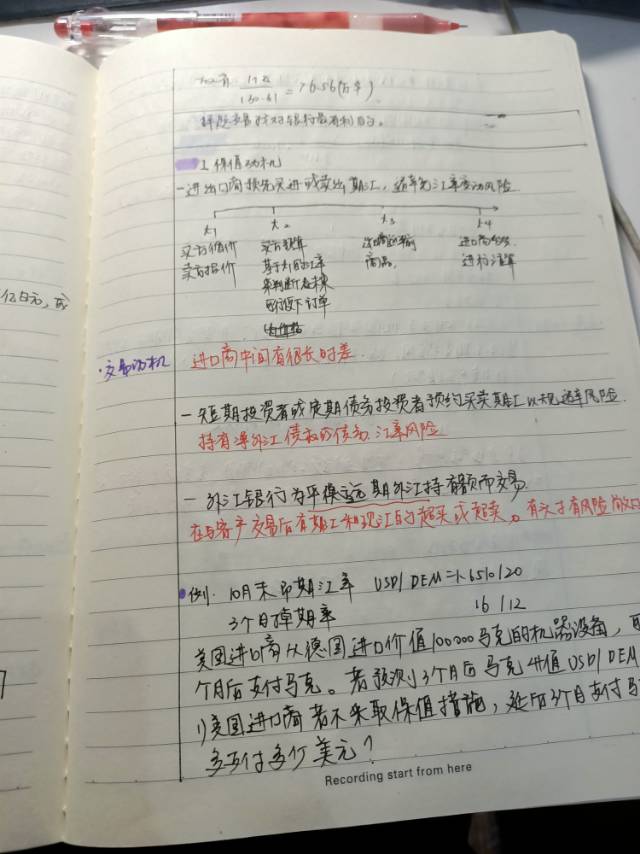 1. 保值动机
一进出口商预先买进或卖出期汇，避免汇率变动风险
t1 t2 t3 t4
买方估价 买方预算 进口商
卖方报价 基于t1的汇率 商品 进行清算
来判断在未来
时候下订单
亿日元，或
·交易动机 进口商中间有很长时差.
一短期投资者或定期债务投资者预约买卖期汇以规避风险.
持有净外汇债权或债务.汇率风险
一外汇银行为平衡远期外汇持有额而交易
在与客户交易后有期汇和现汇的超买或超卖。有头寸有风险敞口
例. 10月末即期汇率 USD/DEM=1.6510/20
3个月掉期率 16/12
美国进口商从德国进口价值100000马克的机器设备，
个月后支付马克。若预测3个月后马克升值USD/DEM
1)美国进口商若不采取保值措施，延后3个月支付马
多支付多少美元？
Recording start from here